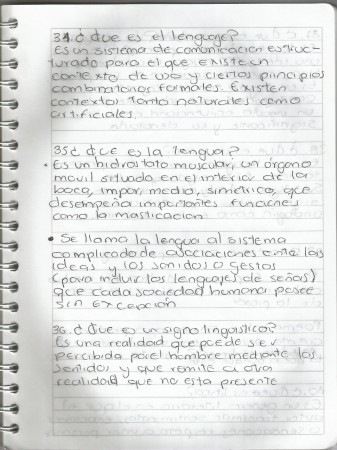 34.¿ Que es el lenguaje?
Es un sistema de comunicación estruc-
turado para el que existe un
contexto de uso y ciertos principios
combinatorios formales. Existen
contextos tanto naturales como
artificiales.
35¿ Que es la lengua?
• Es un hidrostato muscular, un órgano
movil situado en el interior de la
boca, impar, medio, simetrico, que
desempeña importantes funciones
como la masticacion.
• Se llama la lengua al sistema
complicado de asociaciones entre las
ideas y los sonidos o gestos
(para incluir los lenguajes de señas)
que cada sociedad humana posee
sin excepción
36 ¿ Que es un signo linguistico?
Es una realidad que puede ser
percibida por el hombre mediante los
sentidos y que remite a otra
realidad que no esta presente